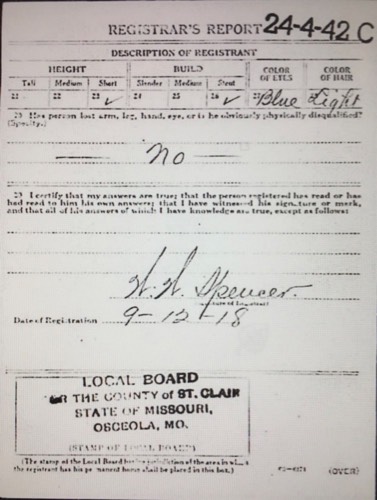 REGISTRAR'S REPORT 24-4-42 C
DESCRIPTION OF REGISTRANT
HEIGHT BUILD COLOR OF EYES COLOR OF HAIR
Tall Medium Short Slender Medium Stout
21 22 23 ✓ 24 25 26 ✓ 27 Blue 28 Light
29 Has person lost arm, leg, hand, eye, or is he obviously physically disqualified?
(Specify.)
— no —
I certify that my answers are true; that the person registered has read or has
had read to him his own answers; that I have witnessed his signature or mark,
and that all of his answers of which I have knowledge are true, except as follows:
Spencer.
Date of Registration 9-12-18
LOCAL BOARD
FOR THE COUNTY of ST. CLAIR
STATE OF MISSOURI,
OSCEOLA, MO.
(STAMP OF LOCAL BOARD)
(The stamp of the Local Board having jurisdiction of the area in which
the registrant has his permanent home shall be placed in this box.)
(OVER)